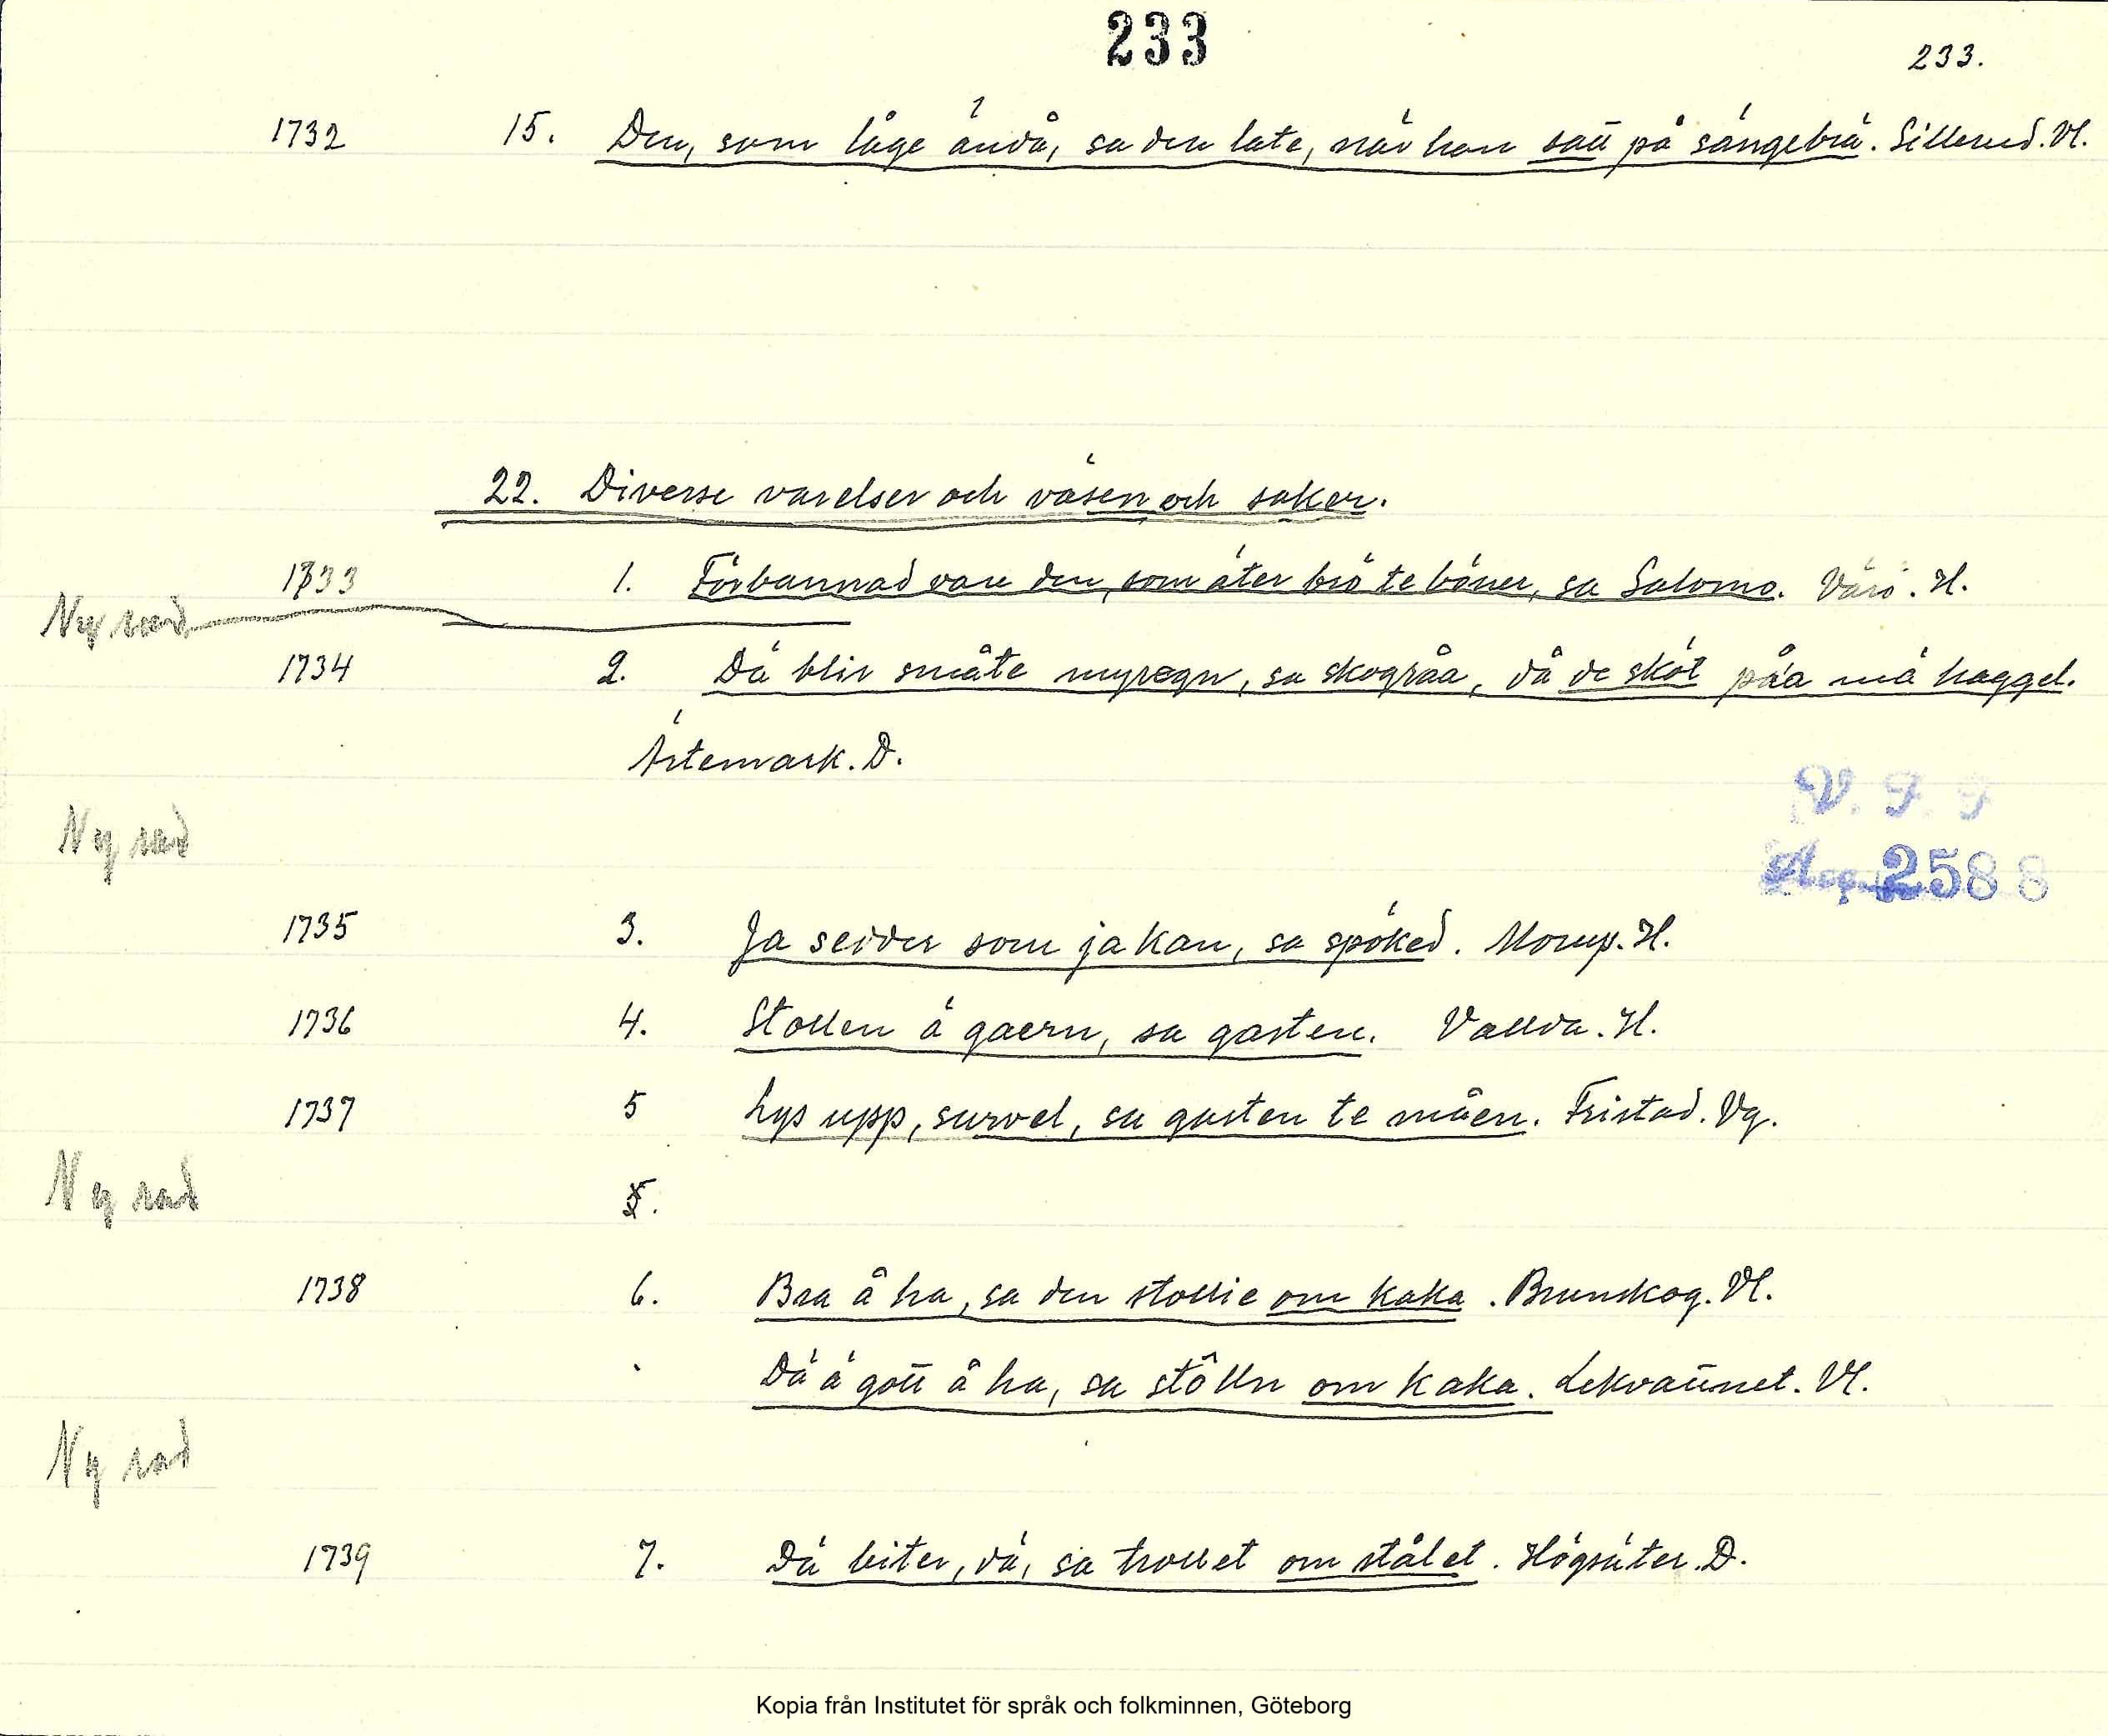 233
233.
1732 15. Den, som låge ändå, sa den late, när han satt på sängebrä. Sillerud. Vl.
22. Diverse varelser och väsen och saker.
1733 1. Förbannad vare den, som äter brö te böner, sa Salomo. Värö. H.
Ny rad
1734 2. Dä blir småte myregn, sa skogråa, då de sköt påa mä haggel.
Ärtemark. D.
V. F. F
Ny rad
Acc. 2588
1735 3. Ja seirer som ja kan, sa spöked. Morup. H.
1736 4. Stollen ä gaern, sa gasten. Vallda. H.
1737 5 Lys upp, survel, sa gasten te måen. Fristad. Vg.
Ny rad
1738 6. Bra å ha, sa den stollie om kaka. Brunskog. Vl.
Dä ä gott å ha, sa stölln om kaka. Lekvattnet. Vl.
Ny rad
1739 7. Dä biter, dä, sa trollet om stålet. Högsäter. D.
Kopia från Institutet för språk och folkminnen, Göteborg